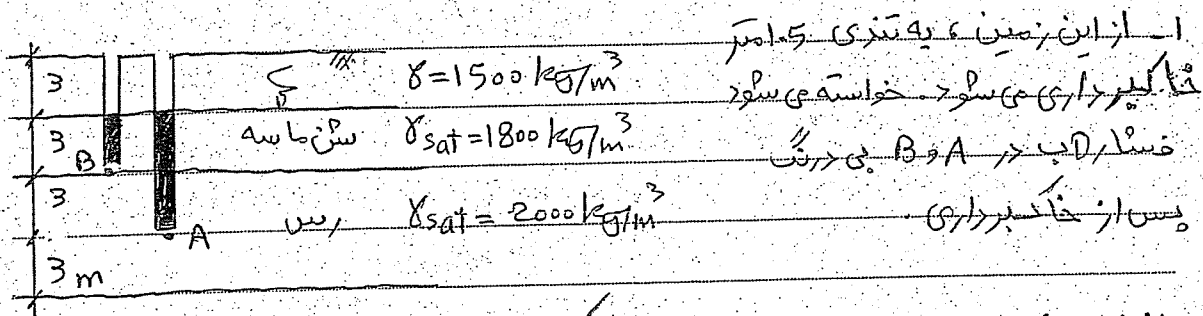 ۱ـ از این زمین ، به تندی 1.5 متر
خاکبرداری می شود. خواسته می شود
فشار آب در A و B بی درنگ
پس از خاکبرداری .
3 γ=1500 kg/m³
3 B شن ماسه γsat=1800 kg/m³
3 A رس γsat=2000 kg/m³
3 m